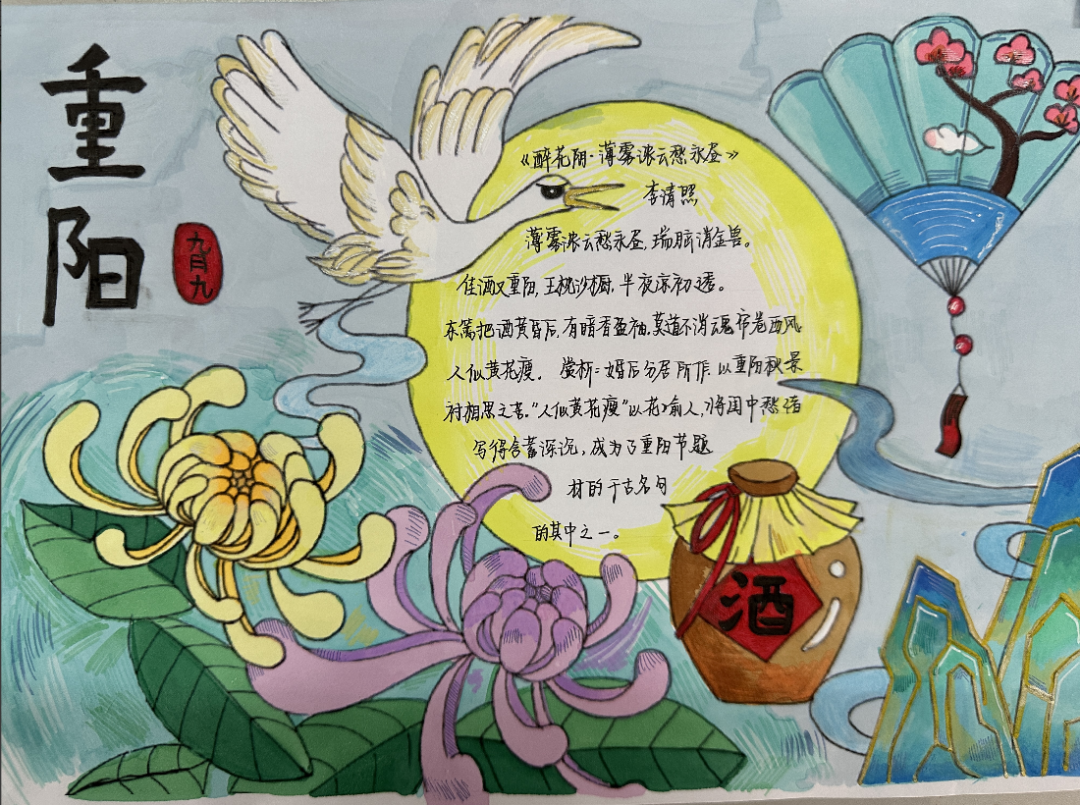 重阳
九月九
《醉花阴·薄雾浓云愁永昼》
李清照
薄雾浓云愁永昼,瑞脑消金兽。
佳酒又重阳,玉枕沙橱,半夜凉初透。
东篱把酒黄昏后,有暗香盈袖,莫道不消魂帘卷西风
人似黄花瘦. 赏析:婚后分居所作,以重阳秋景
衬相思之苦."人似黄花瘦"以花喻人,将闺中愁绪
写得含蓄深沉,成为了重阳节题
材的千古名句
的其中之一。
酒